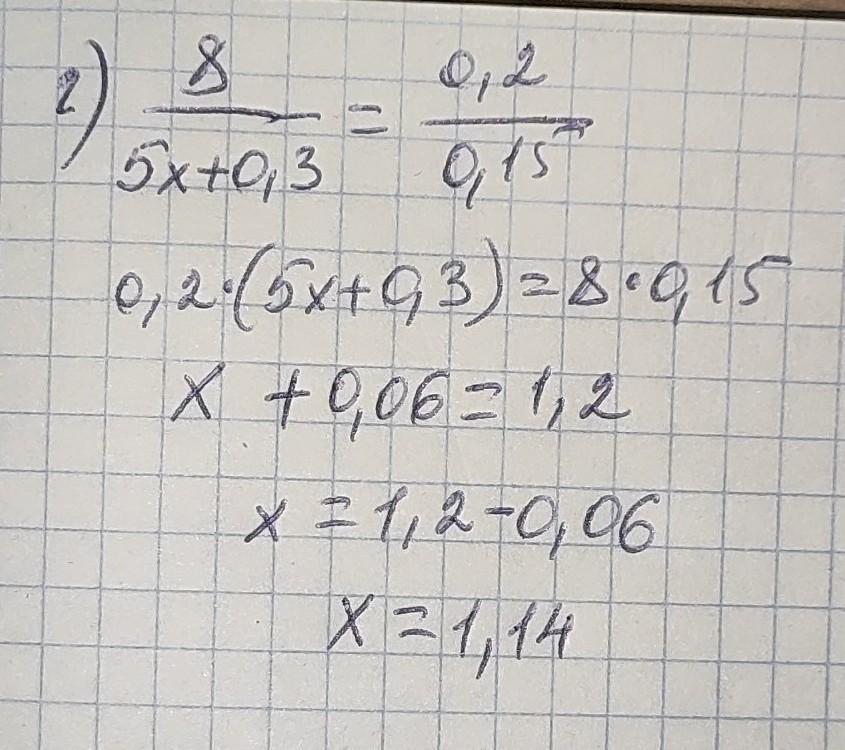 г) 8/(5x+0,3) = 0,2/0,15
0,2·(5x+0,3)=8·0,15
x +0,06=1,2
x=1,2-0,06
x=1,14